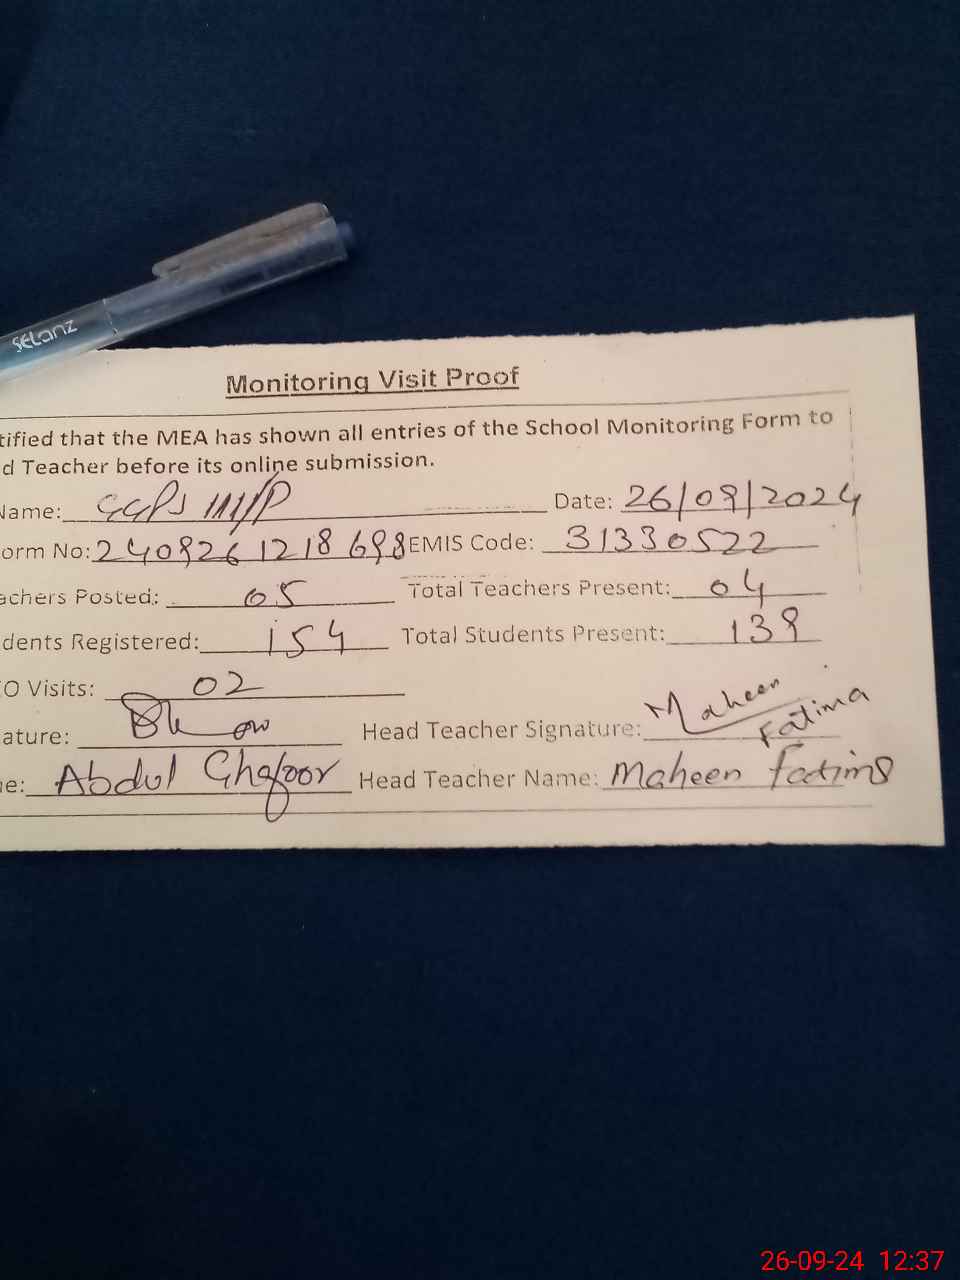 SELanz
Monitoring Visit Proof
tified that the MEA has shown all entries of the School Monitoring Form to
d Teacher before its online submission.
Name: GGPS 111/P Date: 26/09/2024
orm No: 240926 1218 698 EMIS Code: 31330522
achers Posted: 05 Total Teachers Present: 04
dents Registered: 154 Total Students Present: 139
O Visits: 02
ature: Head Teacher Signature: Maheen Fatima
e: Abdul Ghafoor Head Teacher Name: Maheen Fatima
26-09-24 12:37